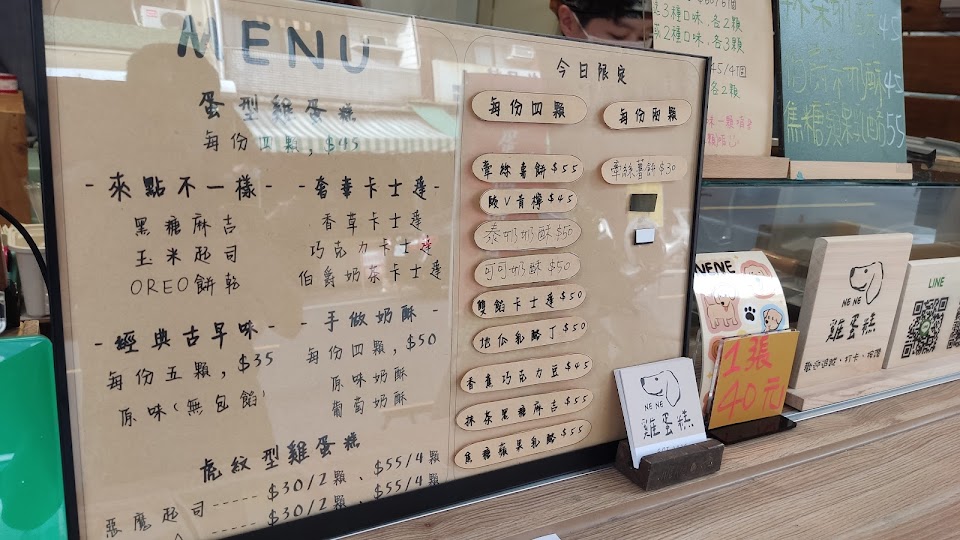 MENU
蛋型雞蛋糕
每份四顆,$45
-來點不一樣-
黑糖麻吉
玉米起司
OREO餅乾
-奢華卡士達-
香草卡士達
巧克力卡士達
伯爵奶茶卡士達
-經典古早味-
每份五顆,$35
原味(無包餡)
-手做奶酥-
每份四顆,$50
原味奶酥
葡萄奶酥
虎紋型雞蛋糕
惡魔起司-----$30/2顆、$55/4顆
$30/2顆、$55/4顆
今日限定
每份四顆
牽絲薯餅$55
陂V青檸$45
泰奶奶酥$50
可可奶酥$50
雙餡卡士達$50
地瓜乳酪丁$50
香蕉巧克力豆$45
抹茶黑糖麻吉$55
焦糖蘋果乳酪$55
每份兩顆
牽絲薯餅$30
3種口味,各2顆
2種口味,各3顆
45/4個
各2顆
45
奶酥45
焦糖
55
NENE
1張
40元
NENE
雞蛋糕
NENE
雞蛋糕
LINE